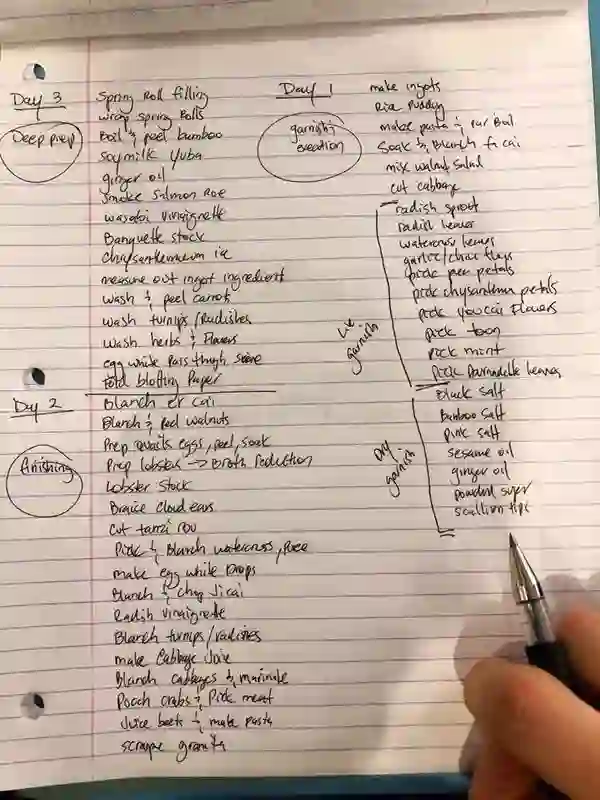 Day 3
Deep prep
Spring Roll filling
wrap spring Rolls
Boil & peel bamboo
Soymilk Yuba
ginger oil
Smoke Salmon Roe
wasabi vinaigrette
Banquette stock
Chrysanthemum ice
measure out ingot ingredient
Wash & peel carrots
Wash turnips/Radishes
Wash herbs & Flowers
egg white Pass through sieve
fold blotting Paper
Day 2
finishing
Blanch er cai
Blanch & peel walnuts
Prep quails eggs, peel, soak
Prep lobsters → Broth Reduction
Lobster Stock
Braise Cloud ears
Cut rou
Pick & Blanch watercress,
make egg white Drops
Blanch & chop Jicai
Radish vinaigrette
Blanch turnips/radishes
make Cabbage Juice
Blanch cabbages & marinate
Poach crabs & Pick meat
Juice beets & make pasta
scrape granita
Day 1
garnish & execution
make ingots
Rice Pudding
make pasta & Par Boil
Soak & Blanch fa cai
mix walnut Salad
cut cabbage
Live garnish
radish sprout
radish leaves
watercress leaves
garlic/chive flags
pick pea petals
pick chrysanthemum petals
pick youcai Flowers
pick toon
pick mint
Pick leaves
Dry garnish
Black Salt
Bamboo Salt
pink Salt
sesame oil
ginger oil
powdered suger
scallion tips